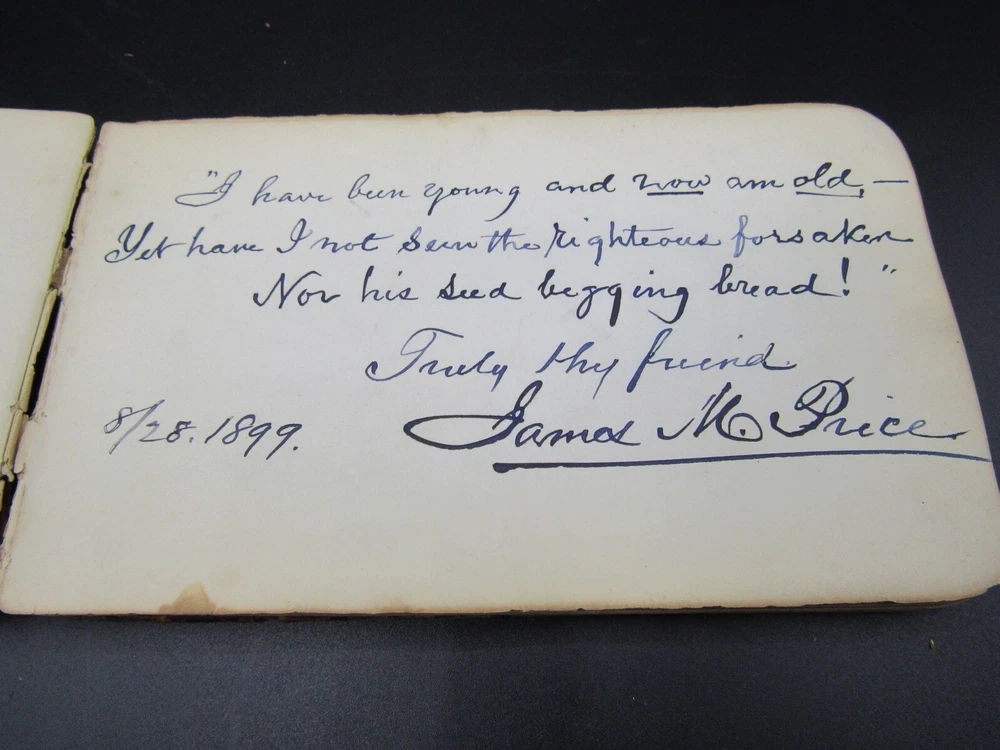 "I have been young and now am old, —
Yet have I not seen the righteous forsaken
Nor his seed begging bread!"
Truly thy friend
James M. Price
8/28.1899.